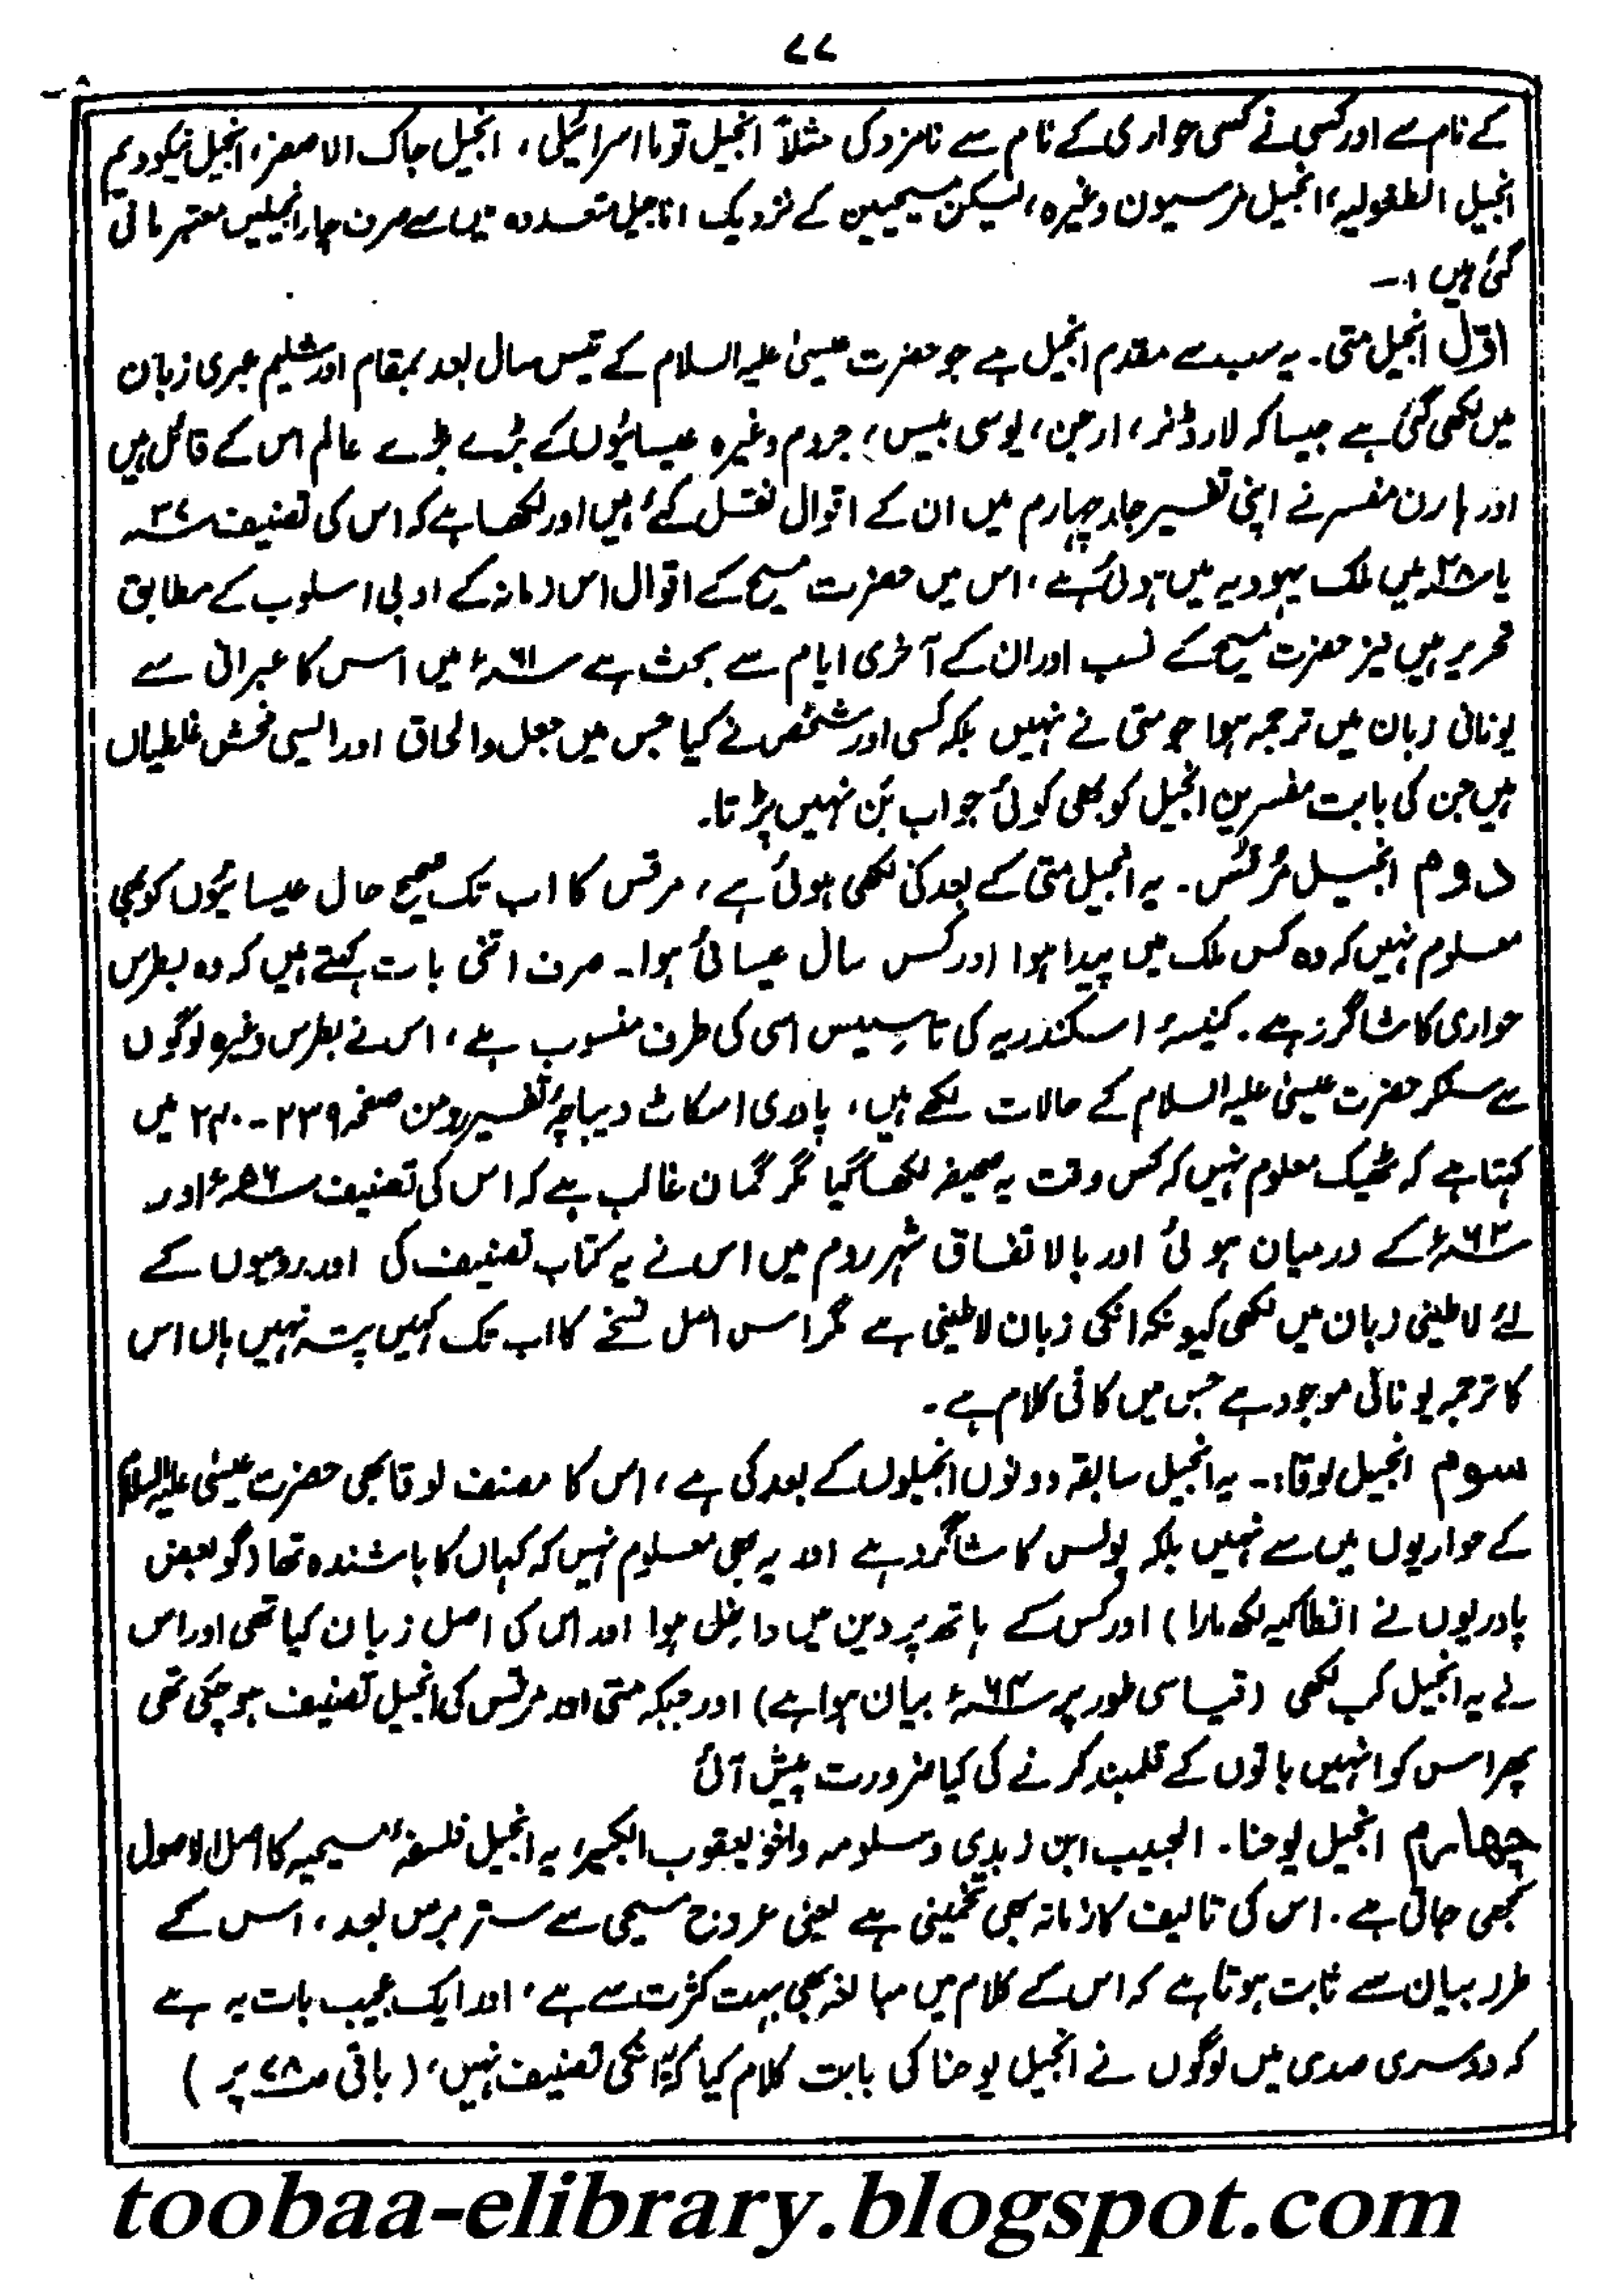 ۷۷
کے نام سے اور کسی نے کسی حواری کے نام سے نامزد کی مثلاً انجیل توما اسرائیلی، انجیل جاک الاصغر، انجیل نیکودیم
انجیل الطفولیہ، انجیل مرسیون وغیرہ، لیکن مسیحیین کے نزدیک اناجیل متعددہ میں سے صرف چار انجیلیں معتبر مانی
گئی ہیں ۱۔
اوّل انجیل متی۔ یہ سب سے مقدم انجیل ہے جو حضرت عیسیٰ علیہ السلام کے تیس سال بعد بمقام اورشلیم عبری زبان
میں لکھی گئی ہے جیسا کہ لارڈنر، ارجن، یوسی بیس، جروم وغیرہ عیسائیوں کے بڑے بڑے عالم اس کے قائل ہیں
اور ہارن مفسر نے اپنی تفسیر جلد چہارم میں ان کے اقوال نقل کئے ہیں اور لکھا ہے کہ اس کی تصنیف ۳۷ء
یا ۳۸ء میں ملک یہودیہ میں ہوئی ہے، اس میں حضرت مسیح کے اقوال اس زمانہ کے ادبی اسلوب کے مطابق
تحریر ہیں نیز حضرت مسیح کے نسب اور ان کے آخری ایام سے بحث ہے ۶۱ء میں اس کا عبرانی سے
یونانی زبان میں ترجمہ ہوا جو متی نے نہیں بلکہ کسی اور شخص نے کیا جس میں جعل والحاق اور ایسی فحش غلطیاں
ہیں جن کی بابت مفسرین انجیل کو بھی کوئی جواب بَن نہیں پڑتا۔
دوم انجیل مُرقُس۔ یہ انجیل متی کے بعد کی لکھی ہوئی ہے، مرقس کا اب تک صحیح حال عیسائیوں کو بھی
معلوم نہیں کہ وہ کس ملک میں پیدا ہوا اور کس سال عیسائی ہوا۔ صرف اتنی بات کہتے ہیں کہ وہ بطرس
حواری کا شاگرد ہے۔ کنیسۂ اسکندریہ کی تاسیس اسی کی طرف منسوب ہے، اس نے بطرس وغیرہ لوگوں
سے سنکر حضرت عیسیٰ علیہ السلام کے حالات لکھے ہیں، پادری اسکاٹ دیباچۂ تفسیر رومن صفحہ ۲۳۹-۲۴۰ میں
کہتا ہے کہ ٹھیک معلوم نہیں کہ کس وقت یہ صحیفہ لکھا گیا مگر گمان غالب ہے کہ اس کی تصنیف ۵۶ء اور
۶۳ء کے درمیان ہوئی اور بالاتفاق شہر روم میں اس نے یہ کتاب تصنیف کی اور رومیوں کے
لئے لاطینی زبان میں لکھی کیونکہ انکی زبان لاطینی ہے مگر اس اصل نسخے کا اب تک کہیں پتہ نہیں ہاں اس
کا ترجمہ یونانی موجود ہے جس میں کافی کلام ہے۔
سوم انجیل لوقا:۔ یہ انجیل سابقہ دونوں انجیلوں کے بعد کی ہے، اس کا مصنف لوقا بھی حضرت عیسیٰ علیہ السلام
کے حواریوں میں سے نہیں بلکہ پولس کا شاگرد ہے اور یہ بھی معلوم نہیں کہ کہاں کا باشندہ تھا (گو بعض
پادریوں نے انطاکیہ لکھ مارا) اور کس کے ہاتھ پر دین میں داخل ہوا اور اس کی اصل زبان کیا تھی اور اس
نے یہ انجیل کب لکھی (قیاسی طور پر ۶۳ء بیان ہوا ہے) اور جبکہ متی اور مرقس کی انجیل تصنیف ہو چکی تھی
پھر اس کو انہیں باتوں کے قلمبند کرنے کی کیا ضرورت پیش آئی
چهارم انجیل یوحنا۔ الحبیب ابن زبدی وسلومہ واخو یعقوب الکبیر، یہ انجیل فلسفۂ مسیحیہ کا اصل الاصول
سمجھی جاتی ہے۔ اس کی تالیف کا زمانہ بھی تخمینی ہے یعنی عروج مسیحی سے ستر برس بعد، اس کے
طرز بیان سے ثابت ہوتا ہے کہ اس کے کلام میں مبالغہ بھی بہت کثرت سے ہے، اور ایک عجیب بات یہ ہے
کہ دوسری صدی میں لوگوں نے انجیل یوحنا کی بابت کلام کیا کہ یہ انکی تصنیف نہیں، (باقی ص۷۸ پر)
toobaa-elibrary.blogspot.com